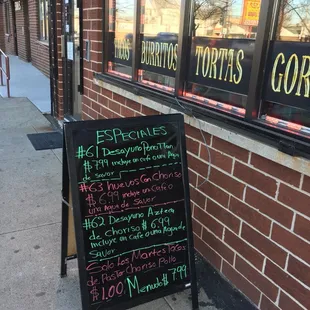 BURRITOS
TORTAS
GOR
ESPECIALES
#61 Desayuno
$7.99 incluye un cafe o una Agua
de Savor
#63 huevos Con Choriso
$6.99 incluye un Cafe o
una Agua de Savor
#62 Desayuno
de Choriso $6.99
incluye un Cafe o una Agua de
Savor
Solo Los Martes Tacos
de Pastor Choriso Pollo
$1.00 Menudo $7.99